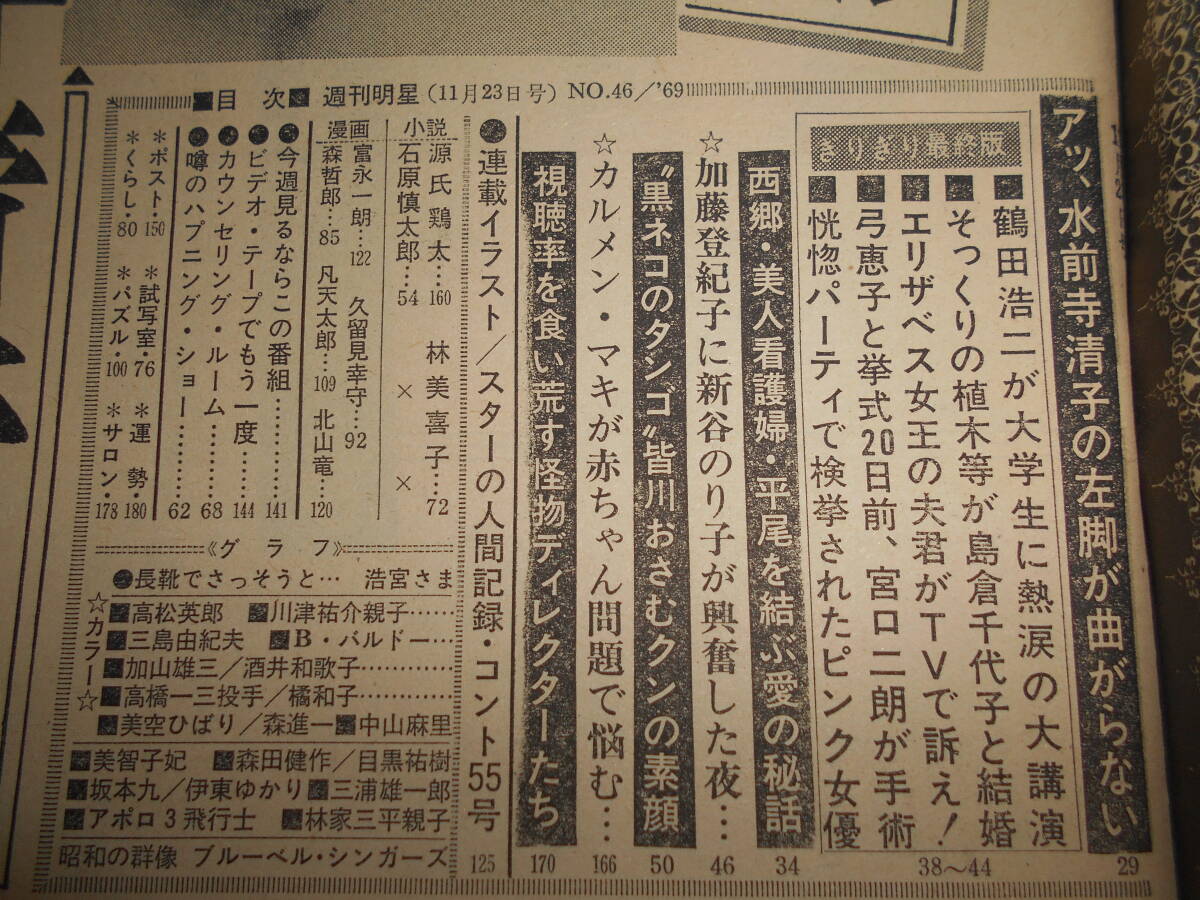 ■目　次■　週刊明星（11月23日号）NO.46／'69
アッ、水前寺清子の左脚が曲がらない
29
ぎりぎり最終版
■鶴田浩二が大学生に熱涙の大講演
■そっくりの植木等が島倉千代子と結婚
■エリザベス女王の夫君がTVで訴え！
■弓恵子と挙式20日前、宮口二朗が手術
■恍惚パーティで検挙されたピンク女優
38～44
西郷・美人看護婦・平尾を結ぶ愛の秘話
34
☆加藤登紀子に新谷のり子が興奮した夜…
46
〝黒ネコのタンゴ〟皆川おさむクンの素顔
50
☆カルメン・マキが赤ちゃん問題で悩む…
166
視聴率を食い荒す怪物ディレクターたち
170
●連載イラスト／スターの人間記録・コント55号
125
小説
源氏鶏太…160　林美喜子…72
石原慎太郎…54　×　×
漫画
富永一朗…122　久留見幸守…92
森哲郎…85　凡天太郎…109　北山竜…120
●今週見るならこの番組…………141
●ビデオ・テープでもう一度………144
●カウンセリング・ルーム…………68
●噂のハプニング・ショー…………62
＊ポスト・150　＊試写室・76　＊運　勢・180
＊くらし・80　＊パズル・100　＊サロン・178
《グラフ》
●長靴でさっそうと…　浩宮さま
☆カラー☆
■高松英郎　■川津祐介親子……
■三島由紀夫　■B・バルドー…
■加山雄三／酒井和歌子…………
■高橋一三投手／橘和子…………
■美空ひばり／森進一■中山麻里
■美智子妃　■森田健作／目黒祐樹
■坂本九／伊東ゆかり■三浦雄一郎
■アポロ3飛行士　■林家三平親子
昭和の群像　ブルーベル・シンガーズ